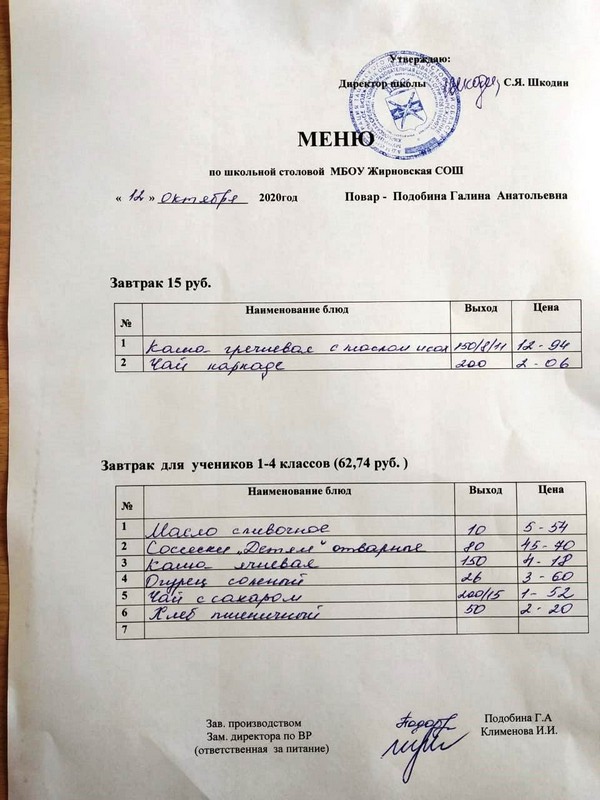 Утверждаю:
Директор школы С.Я. Шкодин
МЕНЮ
по школьной столовой МБОУ Жирновская СОШ
« 12 » октября 2020год Повар - Подобина Галина Анатольевна
Завтрак 15 руб.
№ Наименование блюд Выход Цена
1 Каша гречневая с маслом и сах 150/8/11 12-94
2 Чай каркаде 200 2-06
Завтрак для учеников 1-4 классов (62,74 руб. )
№ Наименование блюд Выход Цена
1 Масло сливочное 10 5-54
2 Сосиски „Детям" отварные 80 45-70
3 Каша ячневая 150 4-18
4 Огурец соленый 26 3-60
5 Чай с сахаром 200/15 1-52
6 Хлеб пшеничный 50 2-20
7
Зав. производством Подобина Г.А
Зам. директора по ВР Клименова И.И.
(ответственная за питание)